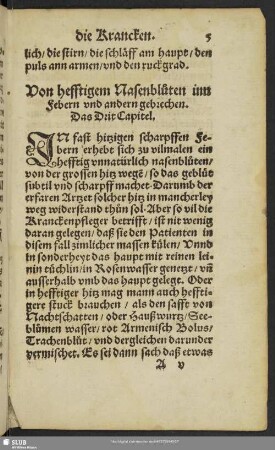 die Krancken. 5
lich/ die stirn/ die schläff am haupt/ den
puls ann armen/ vnd den ruckgrad.
Von hefftigem Nasenblüten inn
Febern vnd andern gebrechen.
Das Drit Capitel.
IN fast hitzigen scharpffen Fe-
bern erhebt sich zu vilmalen ein
hefftig vnnatürlich nasenblüten/
von der grossen hitz wegē/ so das geblüt
subtil vnd scharpff machet. Darumb der
erfaren Artzet solcher hitz in mancherley
weg widerstand thün sol. Aber so vil die
Kranckenpfleger betrifft/ ist nit wenig
daran gelegen/ daß sie den Patienten in
disem fall zimlicher massen külen/ Vnnd
in sonderheyt das haupt mit reinen lei-
nin tüchlin/ in Rosenwasser genetzt/ vñ
ausserhalb vmb das haupt gelegt. Oder
in hefftiger hitz mag mann auch heffti-
gere stuck brauchen/ als den safft von
Nachtschatten/ oder Haußwurtz/ See-
blümen wasser/ rot Armenisch Bolus/
Trachenblüt/ vnd dergleichen darunder
vermischet. Es sei dann sach daß etwas
A v
SLUB